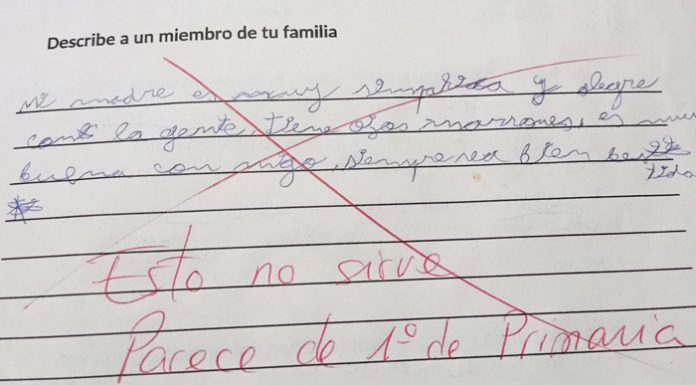 Describe a un miembro de tu familia
mi madre es muy simpatica y alegre
con la gente, tiene ojos marrones, es muy
buena con migo, siempre va bien bes
tida
Esto no sirve
Parece de 1º de Primaria